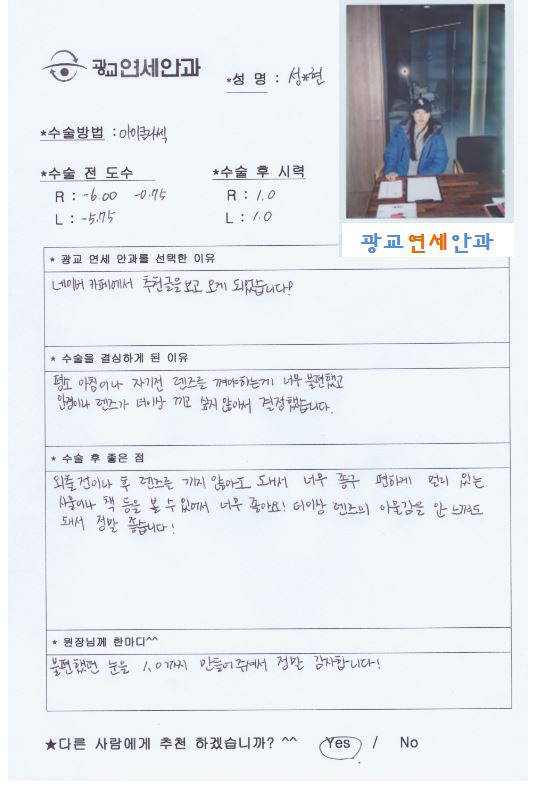 광교연세안과
*성 명 : 성*현
*수술방법 : 아이클라섹
*수술 전 도수
*수술 후 시력
R : -6.00 -0.75
R : 1.0
L : -5.75
L : 1.0
광교연세안과
* 광교 연세 안과를 선택한 이유
네이버 카페에서 추천글을 보고 오게 되었습니다!
* 수술을 결심하게 된 이유
평소 아침이나 자기전 렌즈를 껴야하는게 너무 불편했고
안경이나 렌즈가 더이상 끼고 싶지 않아서 결정했습니다.
* 수술 후 좋은 점
외출 전이나 후 렌즈를 끼지 않아도 돼서 너무 좋구 편하게 멀리 있는
사물이나 책 등을 볼 수 있어서 너무 좋아요! 더이상 렌즈의 이물감을 안 느껴도
돼서 정말 좋습니다!
* 원장님께 한마디^^
불편했던 눈을 1.0까지 만들어주셔서 정말 감사합니다!
★다른 사람에게 추천 하겠습니까? ^^ Yes / No